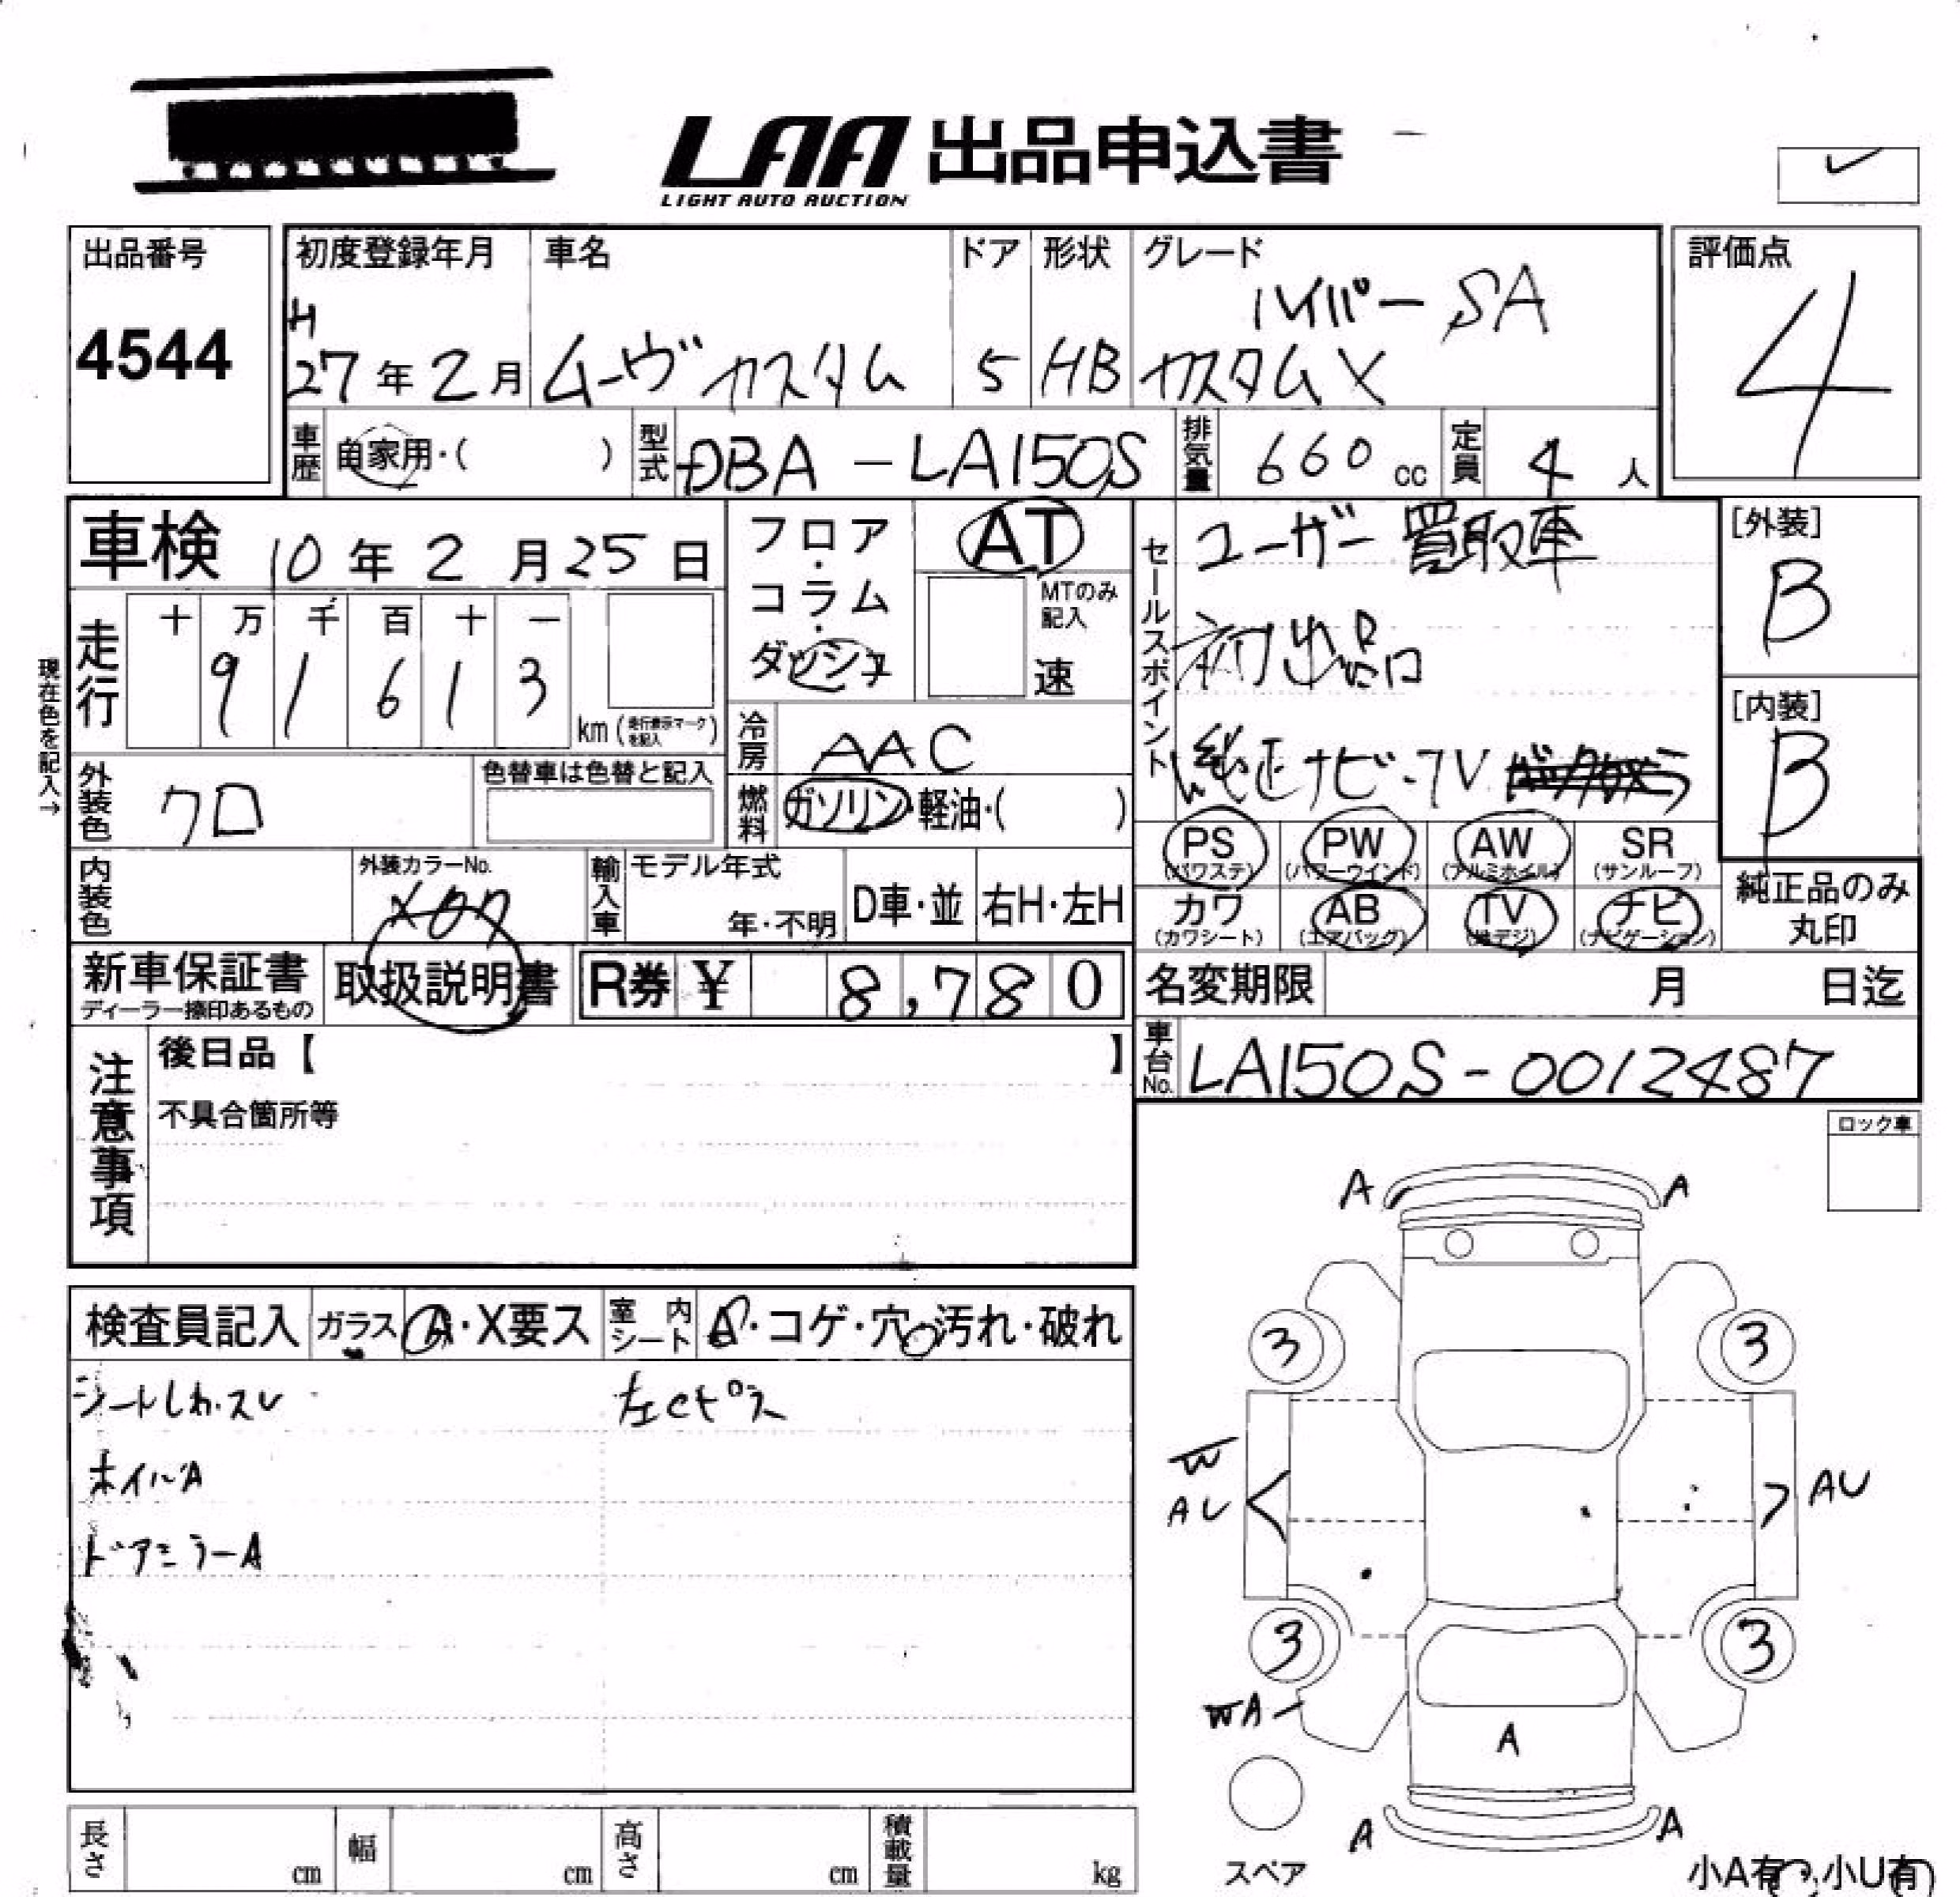 LAA 出品申込書
LIGHT AUTO AUCTION
出品番号
4544
初度登録年月
H
27年2月
車名
ムーヴカスタム
ドア
5
形状
HB
グレード
ハイパーSA
カスタムX
評価点
4
車歴 自家用・( )
型式 DBA-LA150S
排気量 660cc
定員 4人
車検 10年2月25日
フロア・コラム・ダッシュ
AT
MTのみ記入
速
セールスポイント
ユーザー買取車
初出品
純正ナビ・TV
[外装]
B
[内装]
B
現在色を記入→
走行
十 万 千 百 十 一
9 1 6 1 3
km (走行表示マークを記入)
冷房 AAC
外装色 クロ
色替車は色替と記入
燃料 ガソリン・軽油・( )
PS (パワステ)
PW (パワーウインド)
AW (アルミホイル)
SR (サンルーフ)
カワ (カワシート)
AB (エアバック)
TV (地デジ)
ナビ (ナビゲーション)
純正品のみ丸印
内装色
外装カラーNo.
X07
輸入車
モデル年式
年・不明
D車・並
右H・左H
新車保証書
ディーラー捺印あるもの
取扱説明書
R券 ¥ 8,780
名変期限 月 日迄
車台No. LA150S-0012487
注意事項
後日品【 】
不具合箇所等
ロック車
検査員記入
ガラス A・X要ス
室内シート A・コゲ・穴・汚れ・破れ
シートしわ・スレ
左Cピス
ホイルA
ドアミラーA
A A
3 3
W
AU
AU
3 3
WA
A
A A
スペア
小A有 小U有
長さ cm
幅 cm
高さ cm
積載量 kg